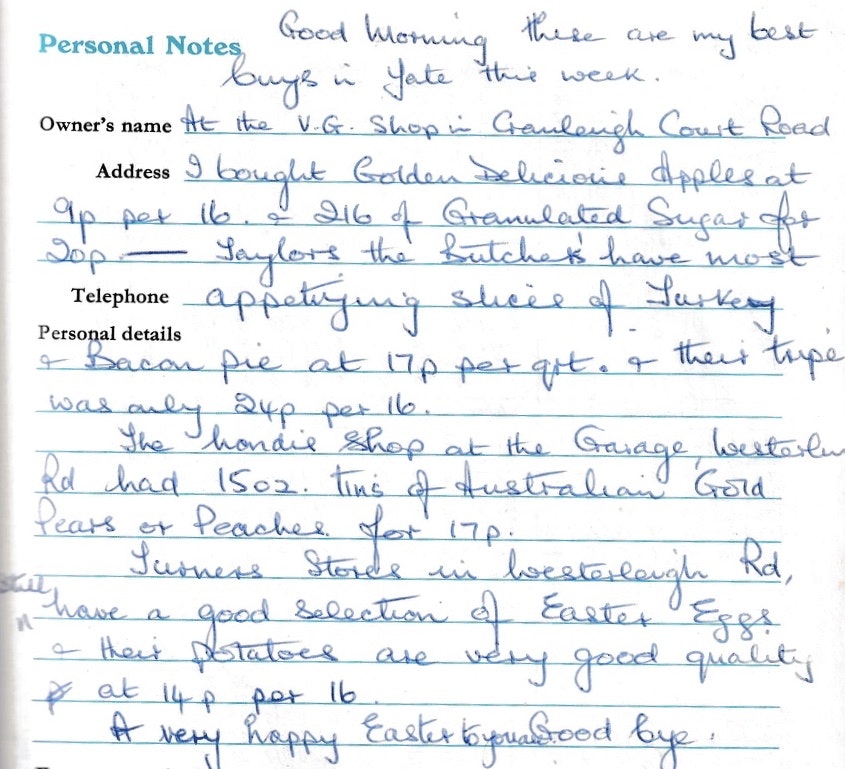 Personal Notes Good Morning these are my best
buys in Yate this week.
Owner's name At the V.G. Shop in Cranleigh Court Road
Address I bought Golden Delicious Apples at
9p per lb. & 2lb of Granulated Sugar for
20p — Taylors the Butchers have most
Telephone appetizing slices of Turkey
Personal details
& Bacon pie at 17p per qrt. & their tripe
was only 24p per lb.
The hondie Shop at the Garage, Westerlei
Rd had 15oz. tins of Australian Gold
Pears or Peaches for 17p.
Turners Stores in Westerleigh Rd,
still
have a good selection of Easter Eggs
& their potatoes are very good quality
at 14p per lb.
A very happy Easter to you all Good bye.